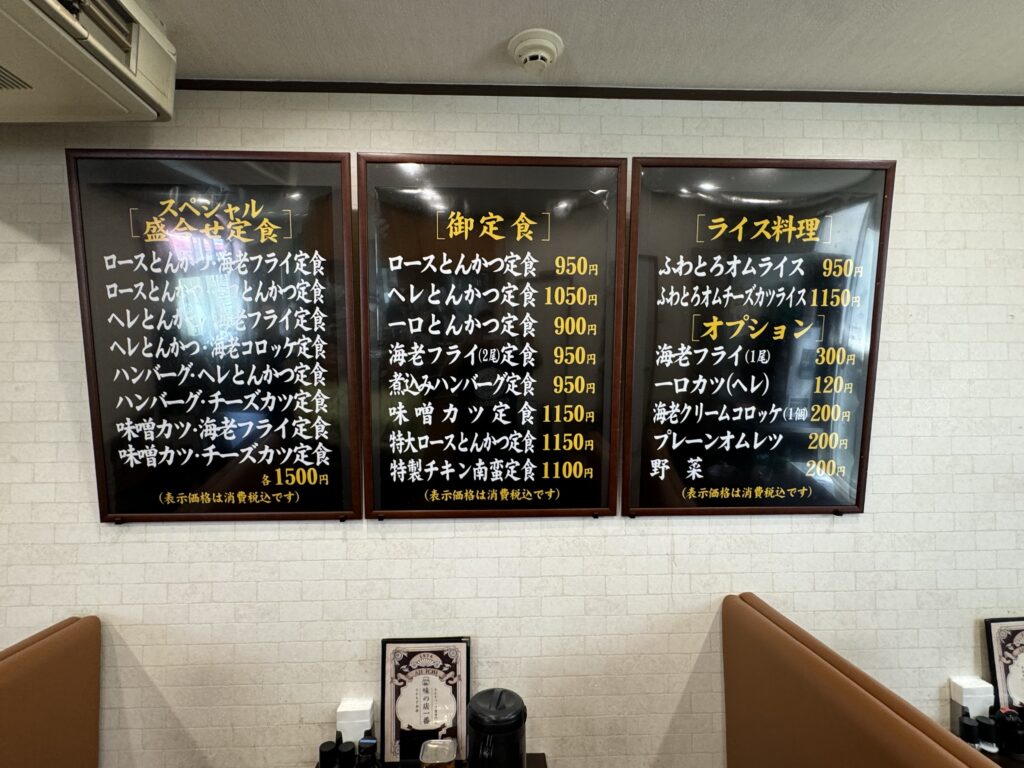 スペシャル
盛合せ定食
ロースとんかつ・海老フライ定食
ロースとんかつ・とんかつ定食
ヘレとんかつ・海老フライ定食
ヘレとんかつ・海老コロッケ定食
ハンバーグ・ヘレとんかつ定食
ハンバーグ・チーズカツ定食
味噌カツ・海老フライ定食
味噌カツ・チーズカツ定食
各1500円
(表示価格は消費税込です)
[御定食]
ロースとんかつ定食 950円
ヘレとんかつ定食 1050円
一口とんかつ定食 900円
海老フライ(2尾)定食 950円
煮込みハンバーグ定食 950円
味噌カツ定食 1150円
特大ロースとんかつ定食 1150円
特製チキン南蛮定食 1100円
(表示価格は消費税込です)
[ライス料理]
ふわとろオムライス 950円
ふわとろオムチーズカツライス 1150円
[オプション]
海老フライ(1尾) 300円
一口カツ(ヘレ) 120円
海老クリームコロッケ(1個) 200円
プレーンオムレツ 200円
野菜 200円
(表示価格は消費税込です)
味の店一番